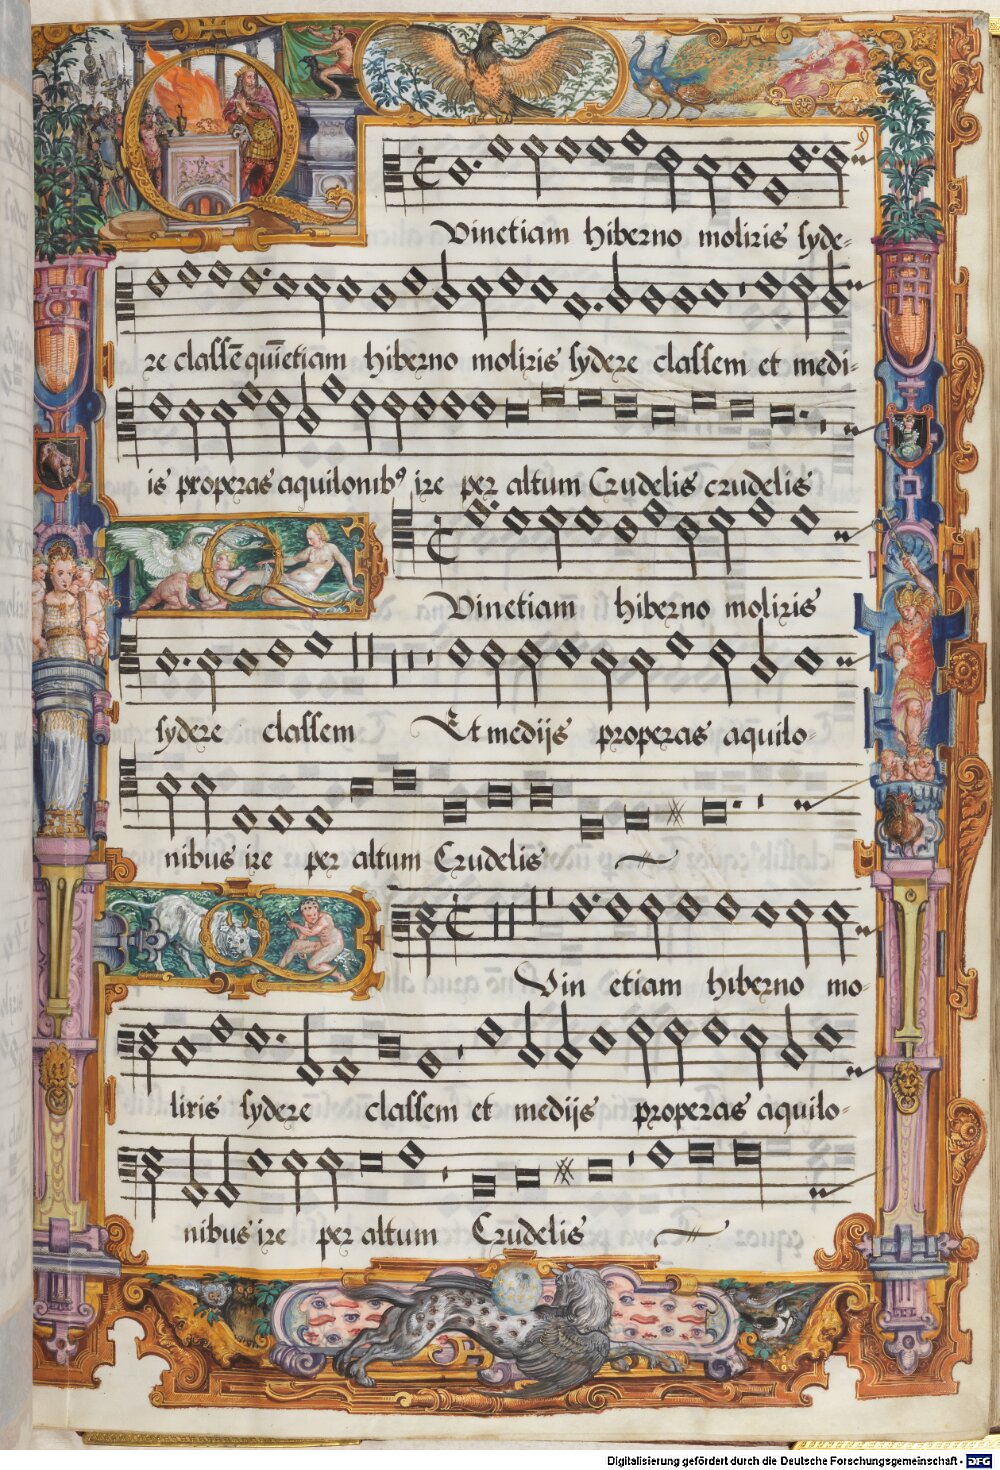 9
Quinetiam hiberno moliris syde-
re classē quīetiam hiberno moliris sydere classem et medi-
is properas aquilonibꝰ ire per altum Crudelis crudelis
Quinetiam hiberno moliris
sydere classem Et medijs properas aquilo-
nibus ire per altum Crudelis
Quin etiam hiberno mo-
liris sydere classem et medijs properas aquilo-
nibus ire per altum Crudelis
Digitalisierung gefördert durch die Deutsche Forschungsgemeinschaft - DFG